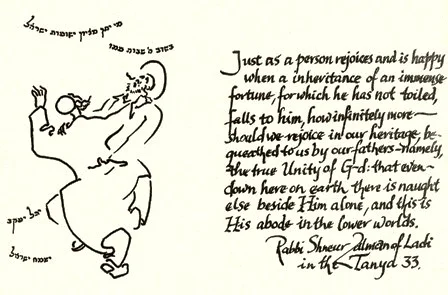 מי יתן מציון ישועות ישראל
בשוב ה' שבות עמו
יגל יעקב
ישמח ישראל
Just as a person rejoices and is happy
when a inheritance of an immense
fortune, for which he has not toiled,
falls to him, how infinitely more
should we rejoice in our heritage, be-
queathed to us by our fathers—namely,
the true Unity of G-d: that even
down here on earth there is naught
else beside Him alone, and this is
His abode in the lower worlds.
Rabbi Shneur Zalman of Ladi
in the Tanya 33.